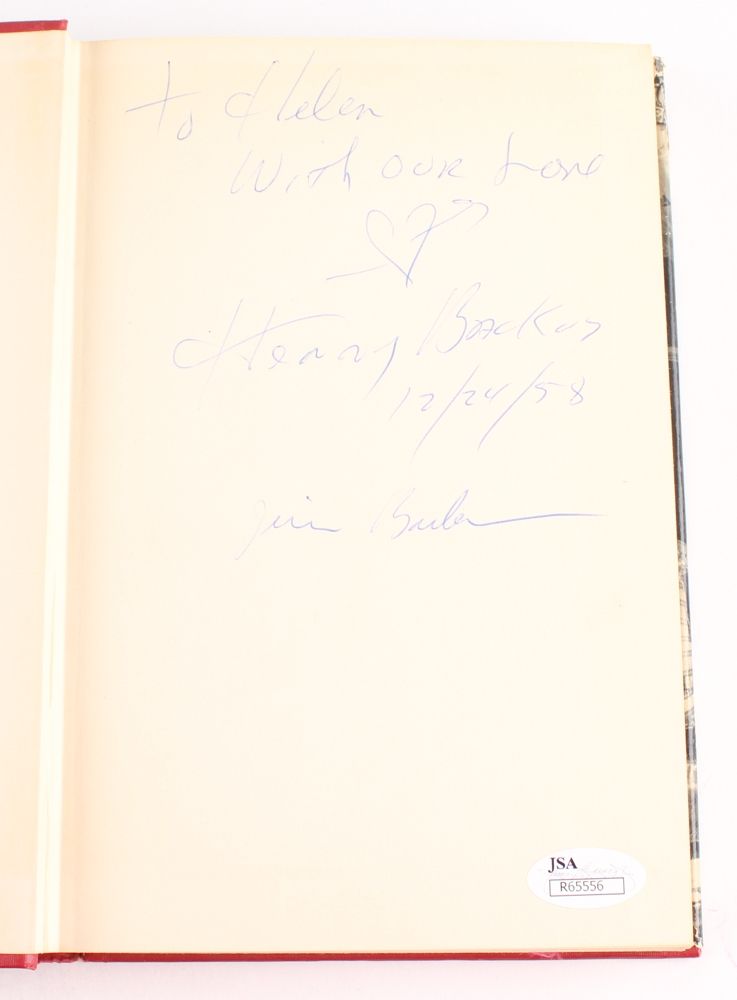 To Helen
With our Love
Henny Backus
12/24/58
Jim Backus
JSA
R65556